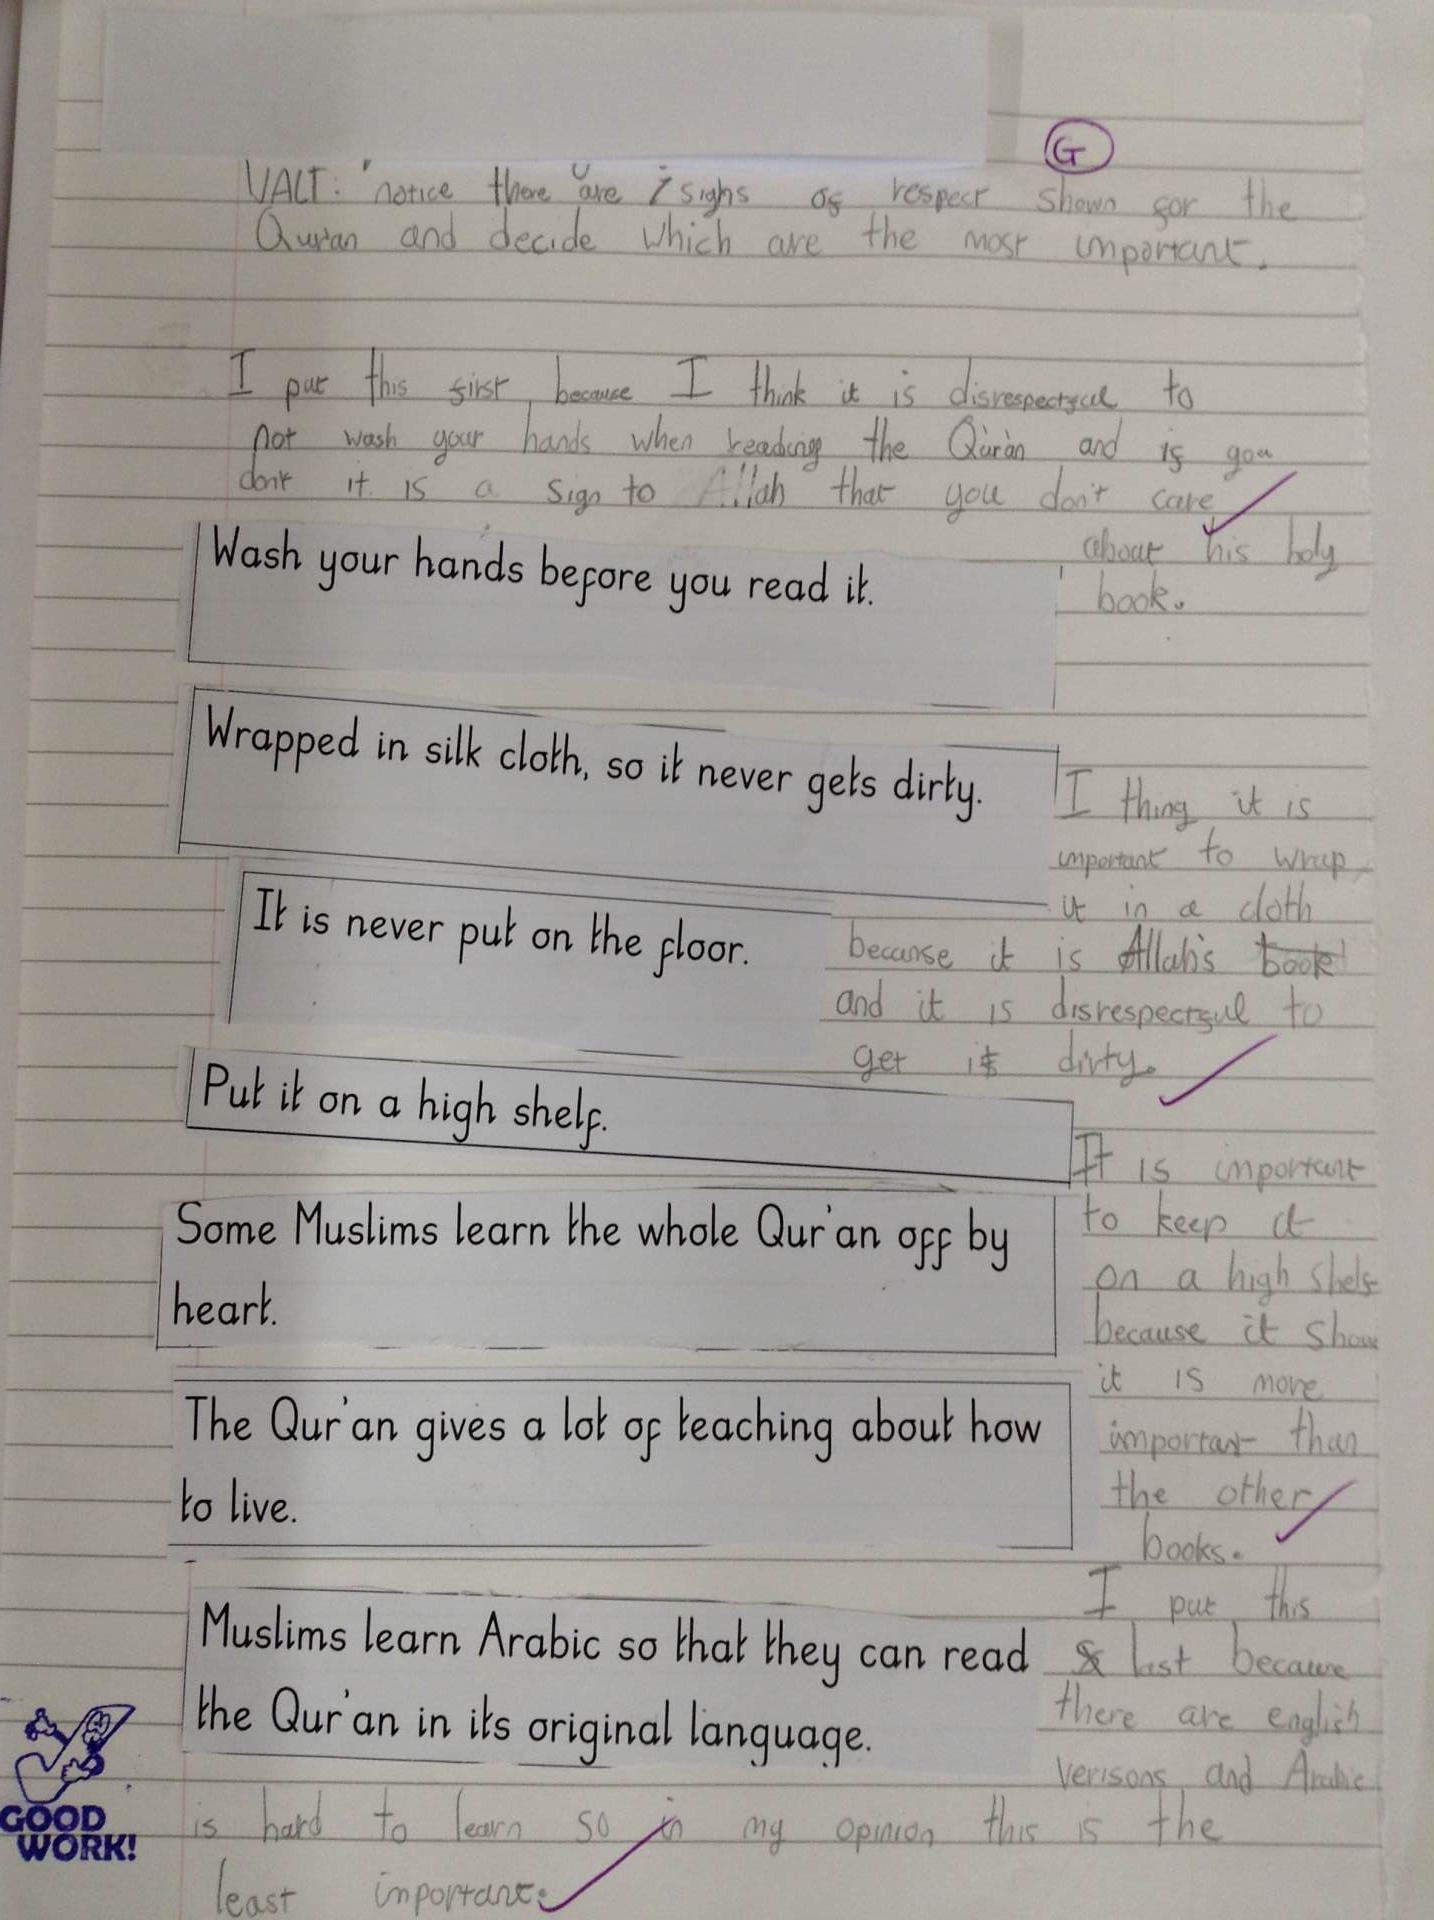 G
WALT: notice there are 7 signs of respect shown for the
Quran and decide which are the most important.
I put this first because I think it is disrespectful to
not wash your hands when reading the Qur'an and if you
don't it is a sign to Allah that you don't care
about his holy
book.
Wash your hands before you read it.
Wrapped in silk cloth, so it never gets dirty.
I thing it is
important to wrap
it in a cloth
because it is Allah's book
and it is disrespectful to
get it dirty.
It is never put on the floor.
Put it on a high shelf.
It is important
to keep it
on a high shelf
because it show
it is more
important than
the other
books.
Some Muslims learn the whole Qur'an off by
heart.
The Qur'an gives a lot of teaching about how
to live.
Muslims learn Arabic so that they can read
the Qur'an in its original language.
I put this
last because
there are english
verisons and Arabic
is hard to learn so in my opinion this is the
least important.
GOOD
WORK!